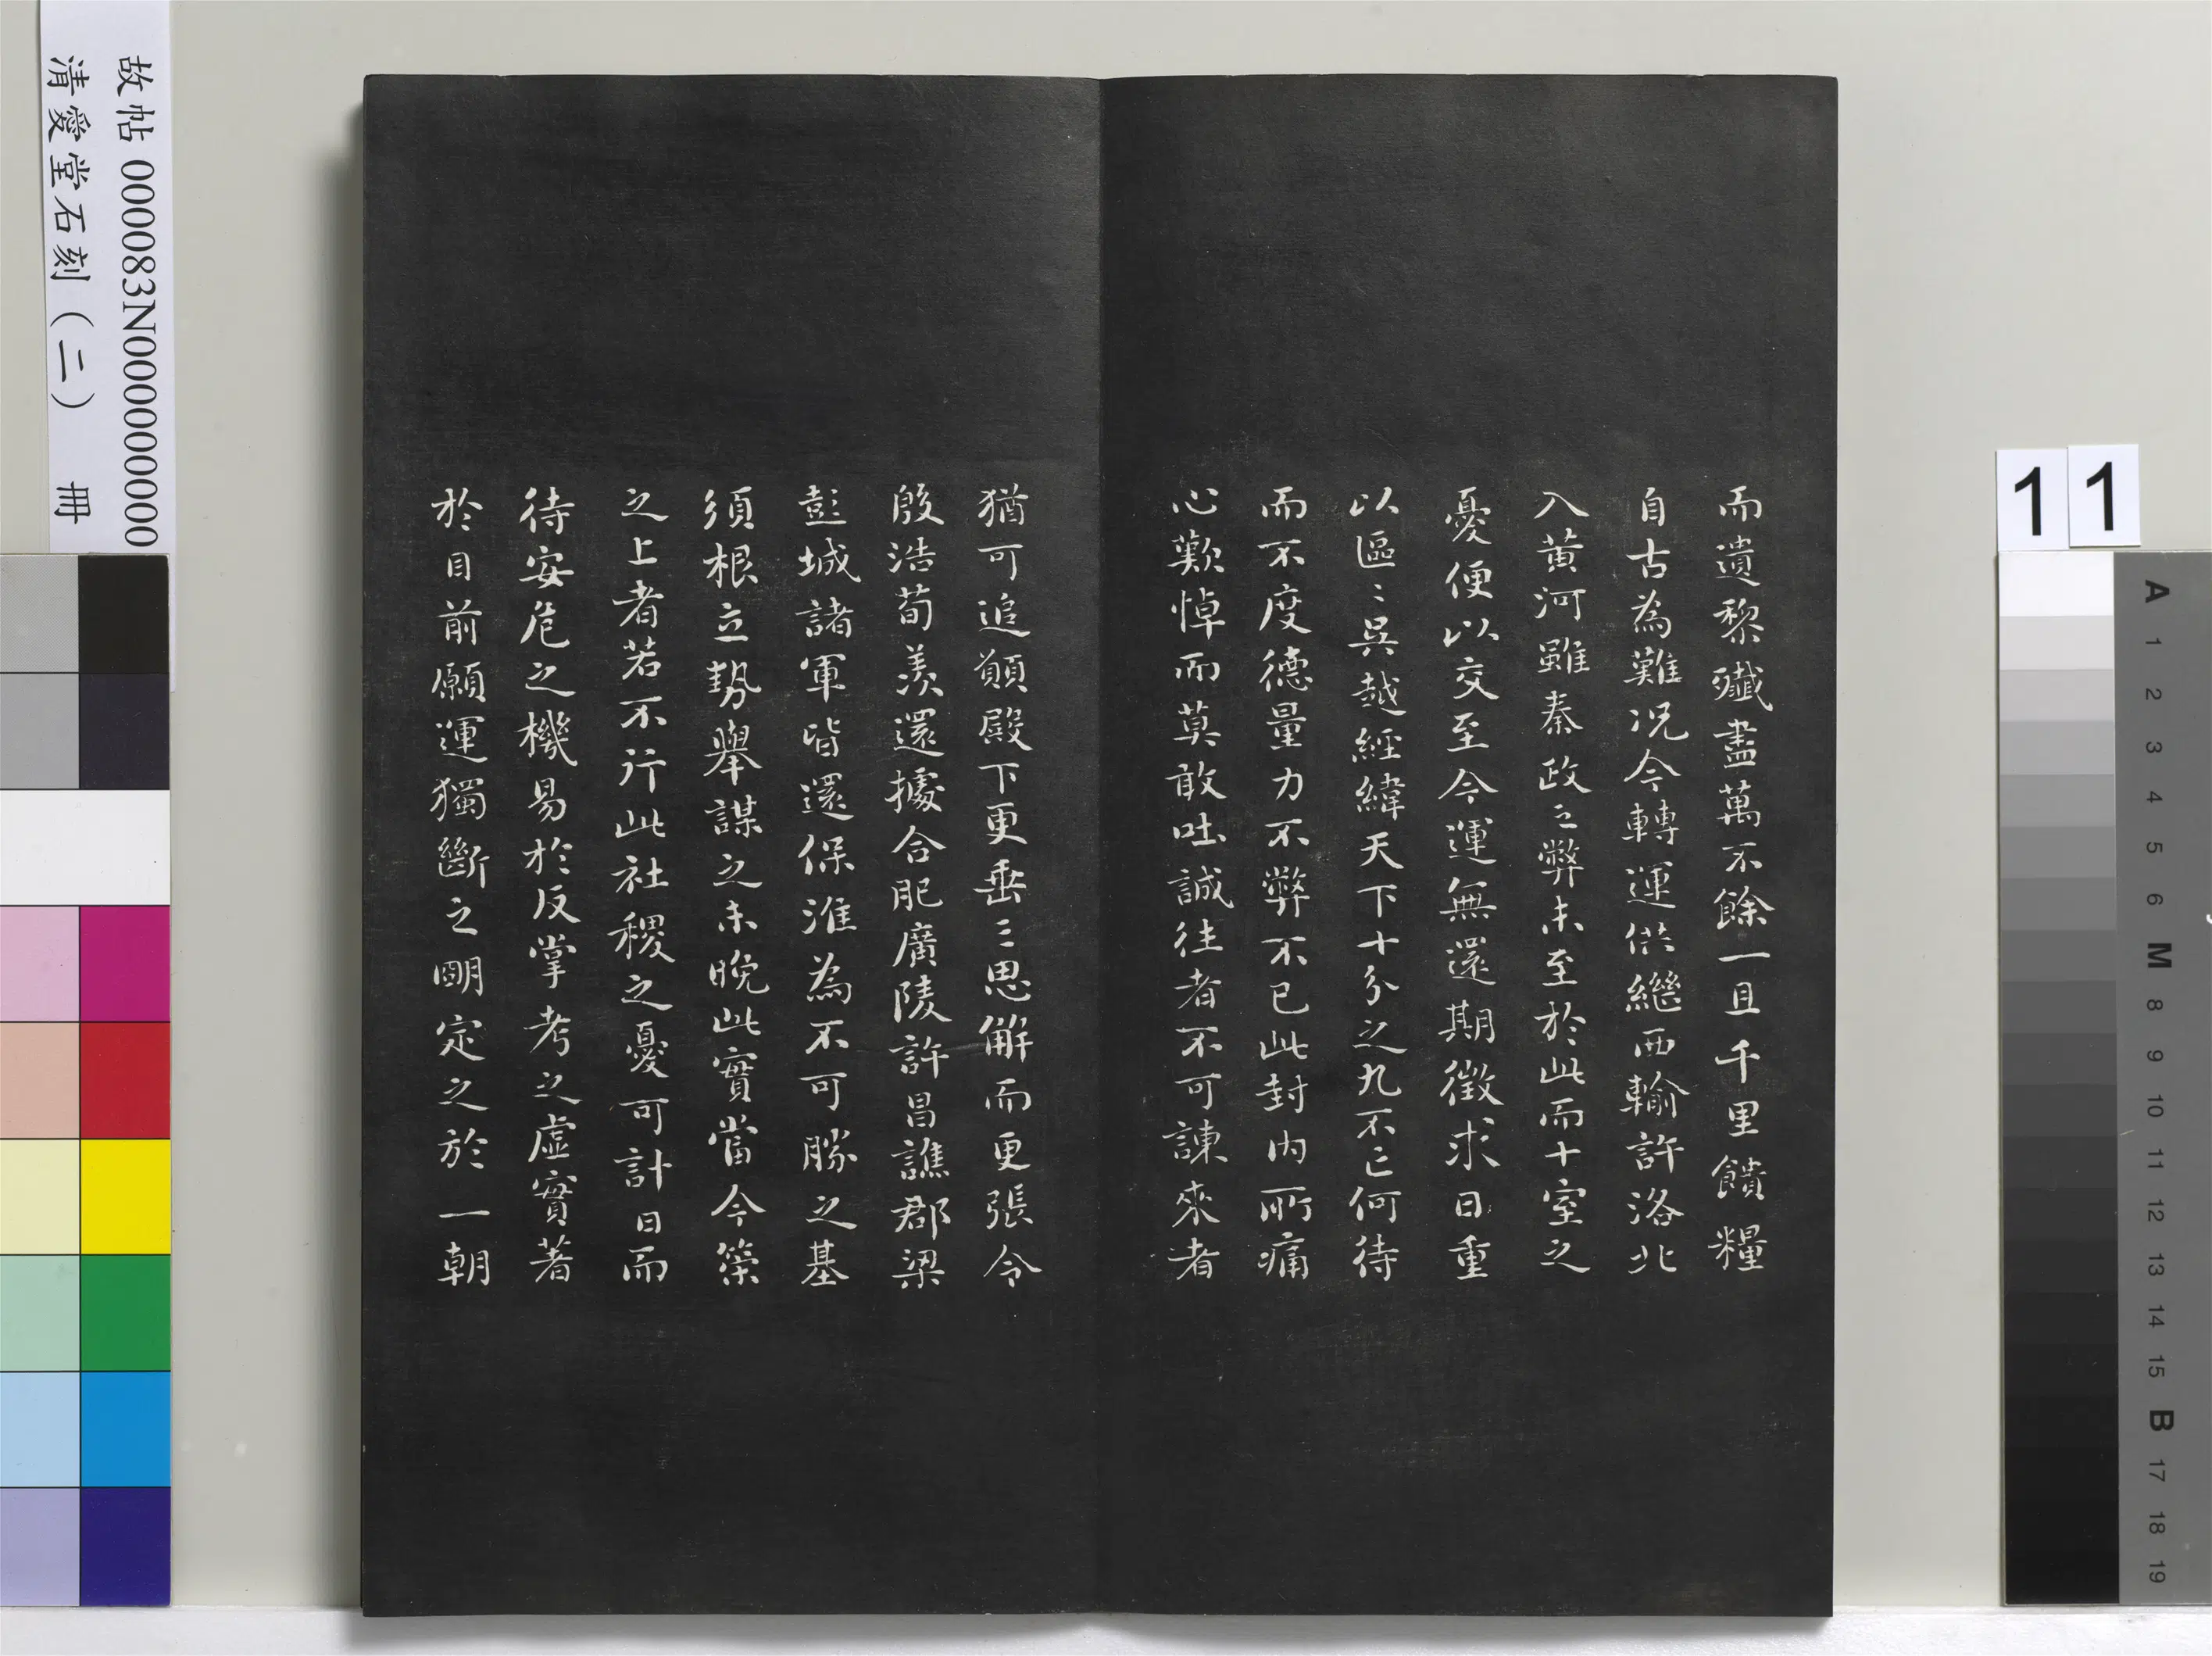 而遺黎殲盡萬不餘一且千里饋糧
自古為難况今轉運供繼西輸許洛北
入黃河雖秦政之弊未至於此而十室之
憂便以交至今運無還期徵求日重
以區〻吳越經緯天下十分之九不亡何待
而不度德量力不弊不已此封内所痛
心歎悼而莫敢吐誠往者不可諫來者
猶可追願殿下更垂三思解而更張令
殷浩荀羨還據合肥廣陵許昌譙郡梁
彭城諸軍皆還保淮為不可勝之基
須根立勢舉謀之未晚此實當今策
之上者若不行此社稷之憂可計日而
待安危之機易於反掌考之虛實著
於目前願運獨斷之明定之於一朝
故帖 000083N000000000
清愛堂石刻(二) 冊
11
A 1 2 3 4 5 6 M 8 9 10 11 12 13 14 15 B 17 18 19